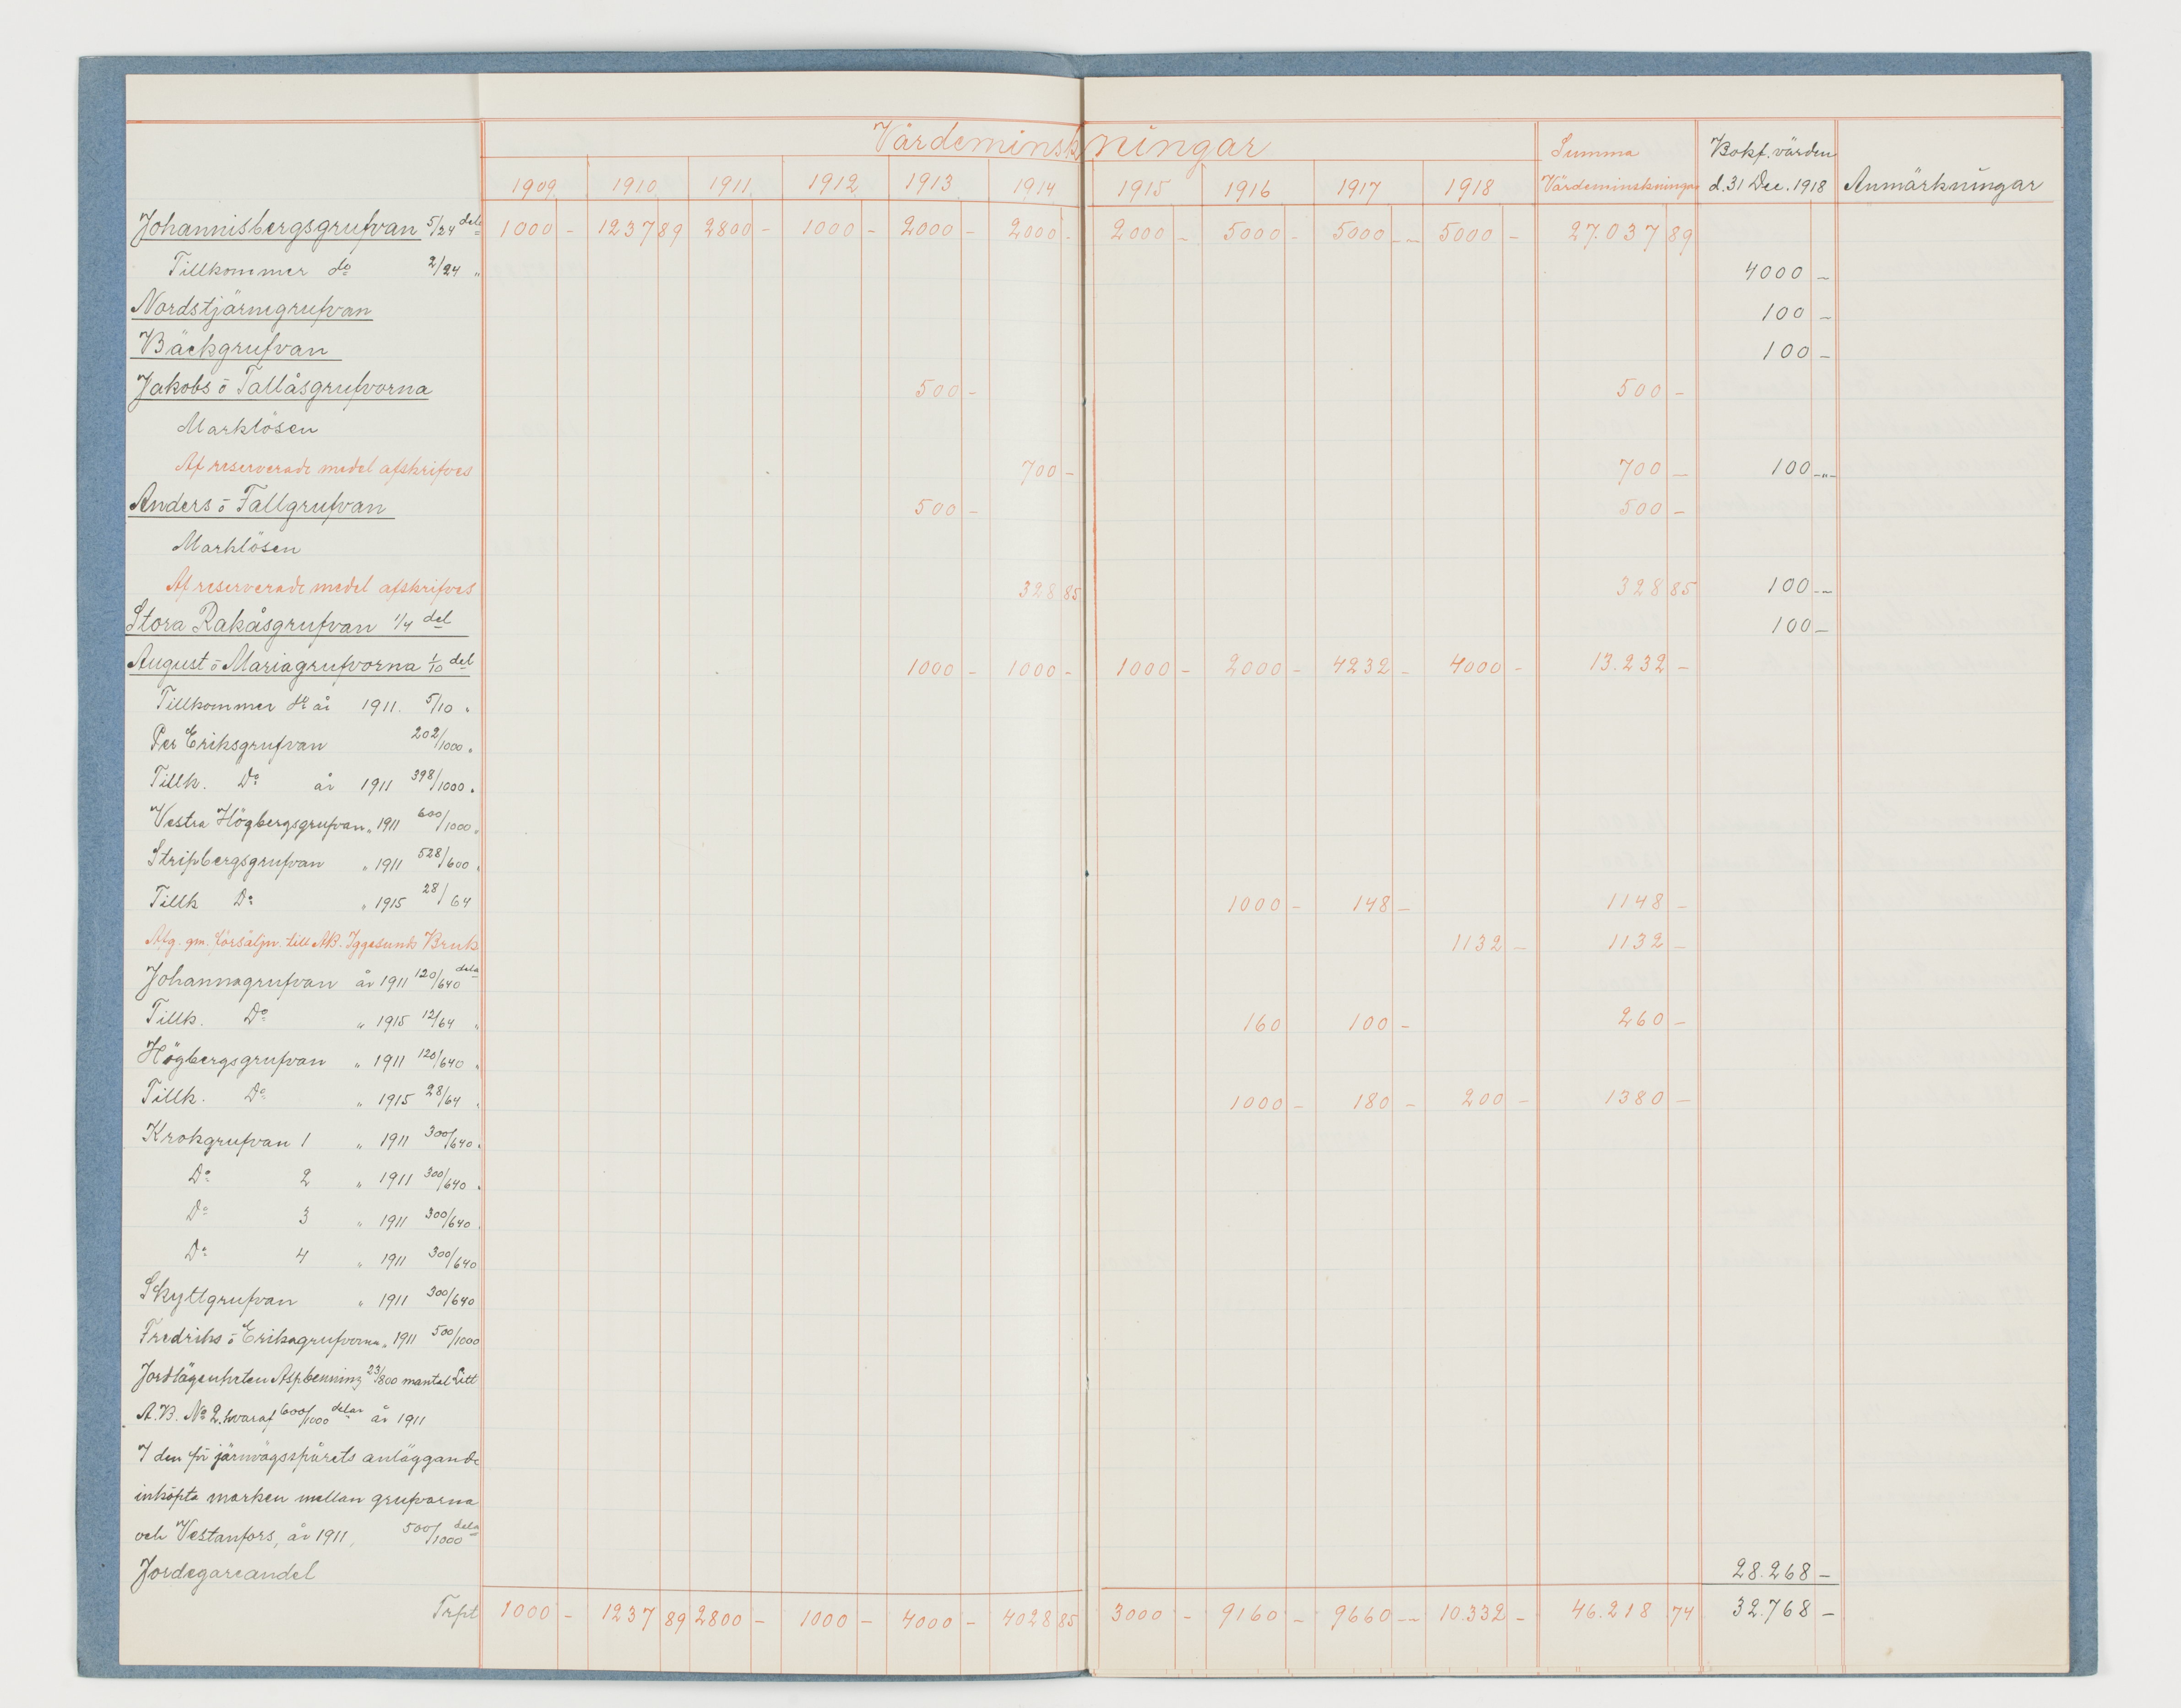 Värdeminskningar Summa Bokf. värden
1909 1910 1911 1912 1913 1914 1915 1916 1917 1918 Värdeminskningar d. 31 Dec. 1918 Anmärkningar
Johannisbergsgrufvan 5/24 dels 1000 - 1237 89 2800 - 1000 - 2000 - 2000 - 2000 - 5000 - 5000 - 5000 - 27.037 89
Tillkommer do 2/24 " 4000 -
Nordstjärnegrufvan 100 -
Bäckgrufvan 100 -
Jakobs o Tallåsgrufvorna 500 - 500 -
Marklösen
Af reserverade medel afskrifves 700 - 700 - 100 -
Anders o Fallgrufvan 500 - 500 -
Marklösen
Af reserverade medel afskrifves 328 85 328 85 100 -
Stora Rakåsgrufvan 1/4 del 100 -
August o Mariagrufvorna 1/10 del 1000 - 1000 - 1000 - 2000 - 4232 - 4000 - 13.232 -
Tillkommer år 1911. 5/10 "
Per Eriksgrufvan 202/1000 "
Tillk. Do år 1911 398/1000 "
Vestra Högbergsgrufvan " 1911 600/1000 "
Stripbergsgrufvan " 1911 528/600 "
Tillk Do " 1915 28/64 1000 - 148 - 1148 -
Afg. gm. försäljn. till AB. Iggesunds Bruk 1132 - 1132 -
Johannagrufvan år 1911 120/640 dels
Tillk. Do " 1915 12/64 " 160 100 - 260 -
Högbergsgrufvan " 1911 120/640 "
Tillk. Do " 1915 28/64 " 1000 - 180 - 200 - 1380 -
Krokgrufvan 1 " 1911 300/640 "
Do 2 " 1911 300/640 "
Do 3 " 1911 300/640 "
Do 4 " 1911 300/640
Skyttgrufvan " 1911 300/640
Fredriks o Erikagrufvorna " 1911 500/1000
Jordlägenheten Aspbenning 23/800 mantal Litt
A.B. No 2. hvaraf 600/1000 delar år 1911
I den för järnvägsspårets anläggande
inköpta marken mellan grufvorna
och Vestanfors, år 1911, 500/1000 dels
Jordegareandel 28.268 -
Trpt 1000 - 1237 89 2800 - 1000 - 4000 - 4028 85 3000 - 9160 - 9660 - 10.332 - 46.218 74 32.768 -